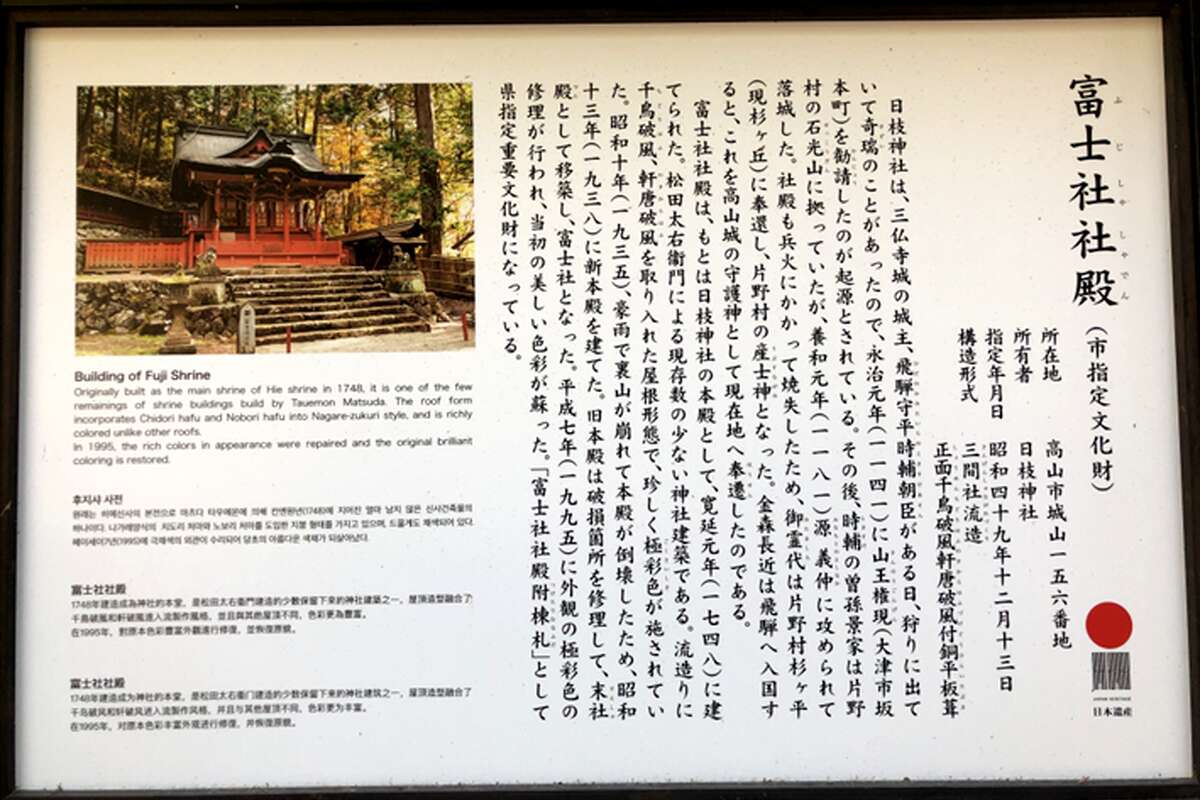 富士社社殿（市指定文化財）
ふじしゃしゃでん
所在地　高山市城山一五六番地
所有者　日枝神社
指定年月日　昭和四十九年十二月十三日
構造形式　三間社流造
正面千鳥破風軒唐破風付銅平板葺
日枝神社は、三仏寺城の城主、飛騨守平時輔朝臣がある日、狩りに出て
いて奇瑞のことがあったので、永治元年（一一四一）に山王権現（大津市坂
本町）を勧請したのが起源とされている。その後、時輔の曽孫景家は片野
村の石光山に拠っていたが、養和元年（一一八一）源 義仲に攻められて
落城した。社殿も兵火にかかって焼失したため、御霊代は片野村杉ヶ平
（現杉ヶ丘）に奉還し、片野村の産士神となった。金森長近は飛騨へ入国す
ると、これを高山城の守護神として現在地へ奉遷したのである。
富士社社殿は、もとは日枝神社の本殿として、寛延元年（一七四八）に建
てられた。松田太右衛門による現存数の少ない神社建築である。流造りに
千鳥破風、軒唐破風を取り入れた屋根形態で、珍しく極彩色が施されてい
た。昭和十年（一九三五）、豪雨で裏山が崩れて本殿が倒壊したため、昭和
十三年（一九三八）に新本殿を建てた。旧本殿は破損箇所を修理して、末社
殿として移築し、富士社となった。平成七年（一九九五）に外観の極彩色の
修理が行われ、当初の美しい色彩が蘇った。「富士社社殿附棟札」として
県指定重要文化財になっている。
JAPAN HERITAGE
日本遺産
Building of Fuji Shrine
Originally built as the main shrine of Hie shrine in 1748, it is one of the few
remainings of shrine buildings build by Tauemon Matsuda. The roof form
incorporates Chidori hafu and Nobori hafu into Nagare-zukuri style, and is richly
colored unlike other roofs.
In 1995, the rich colors in appearance were repaired and the original brilliant
coloring is restored.
후지샤 사전
원래는 히에신사의 본전으로 마츠다 타우에몬에 의해 칸엔원년(1748)에 지어진 얼마 남지 않은 신사건축물의
하나이다. 나가레양식의 치도리 처마와 노보리 처마를 도입한 지붕 형태를 가지고 있으며, 드물게도 채색되어 있다.
헤이세이7년(1995)에 극채색의 외관이 수리되어 당초의 아름다운 색채가 되살아났다.
富士社社殿
1748年建造成為神社的本堂，是松田太右衛門建造的少數保留下來的神社建築之一，屋頂造型融合了
千鳥破風和軒破風進入流製作風格，並且與其他屋頂不同，色彩更為豐富。
在1995年，對原本色彩豐富外觀進行修復，並恢復原貌。
富士社社殿
1748年建造成为神社的本堂，是松田太右衛门建造的少数保留下来的神社建筑之一，屋顶造型融合了
千岛破风和轩破风进入流製作风格，并且与其他屋顶不同，色彩更为丰富。
在1995年，对原本色彩丰富外观进行修復，并恢復原貌。